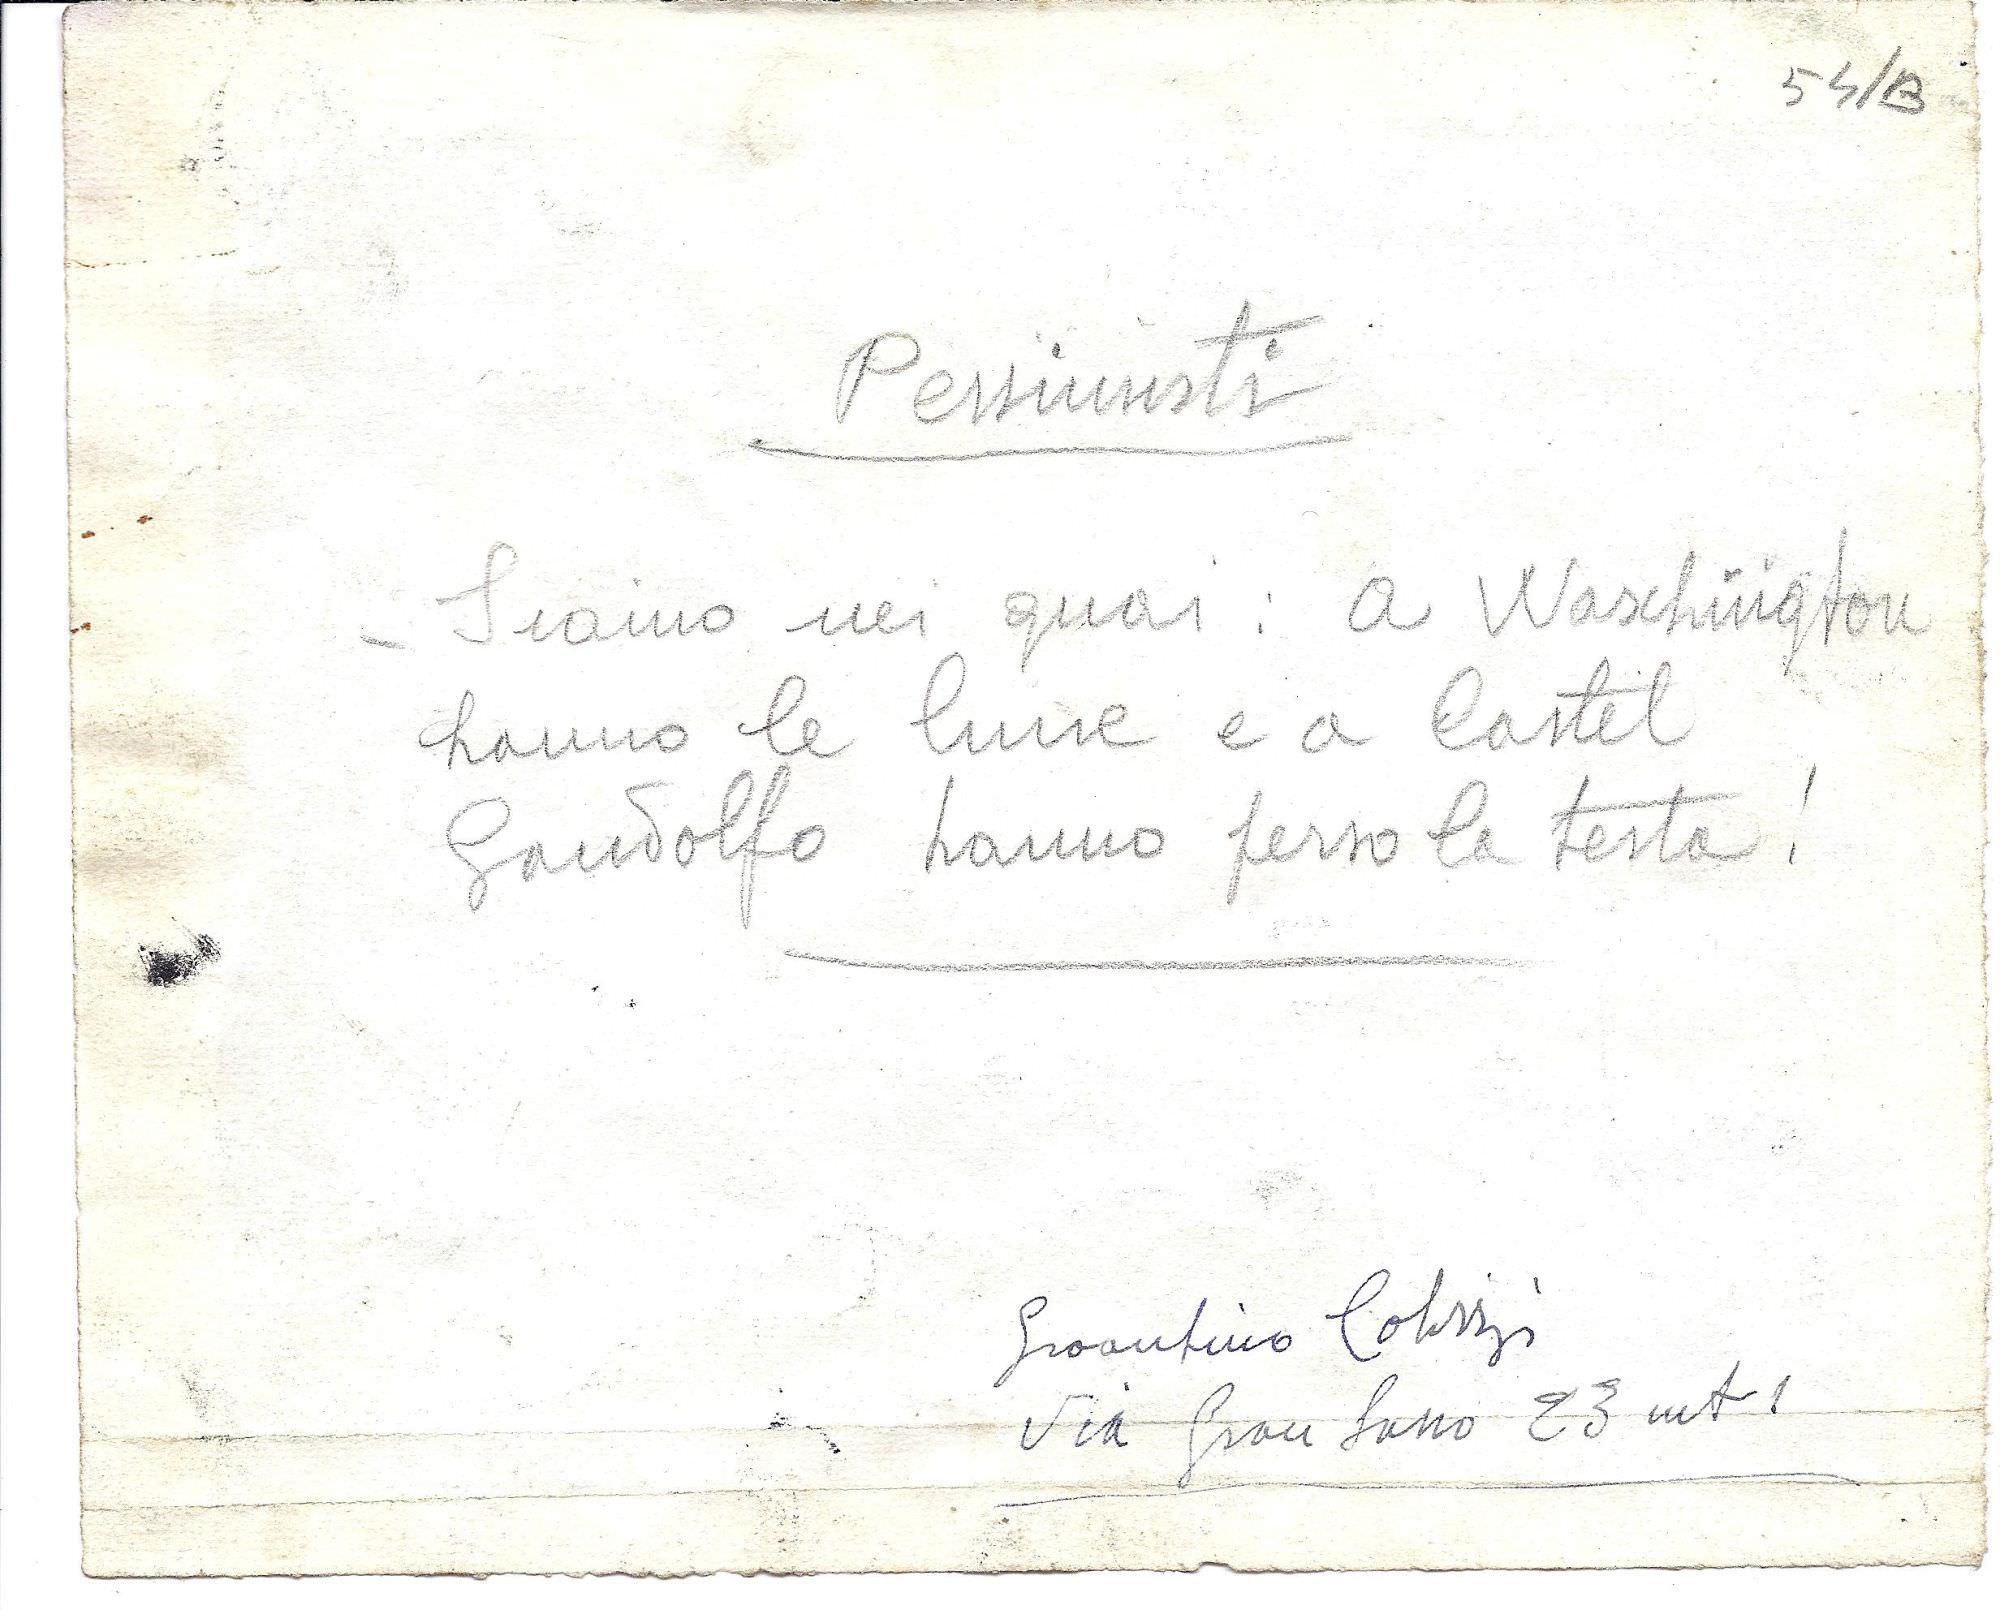 54/B
Pessimisti
- Siamo nei guai: a Waschington
hanno le lune e a Castel
Gandolfo hanno perso la testa!
Graantino Colizzi
Via Gran Sasso 23 int 1